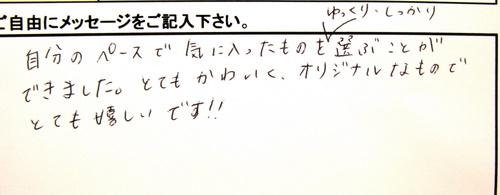 ご自由にメッセージをご記入下さい。
ゆっくり・しっかり
自分のペースで気に入ったものを選ぶことが
できました。とてもかわいく、オリジナルなもので
とても嬉しいです!!